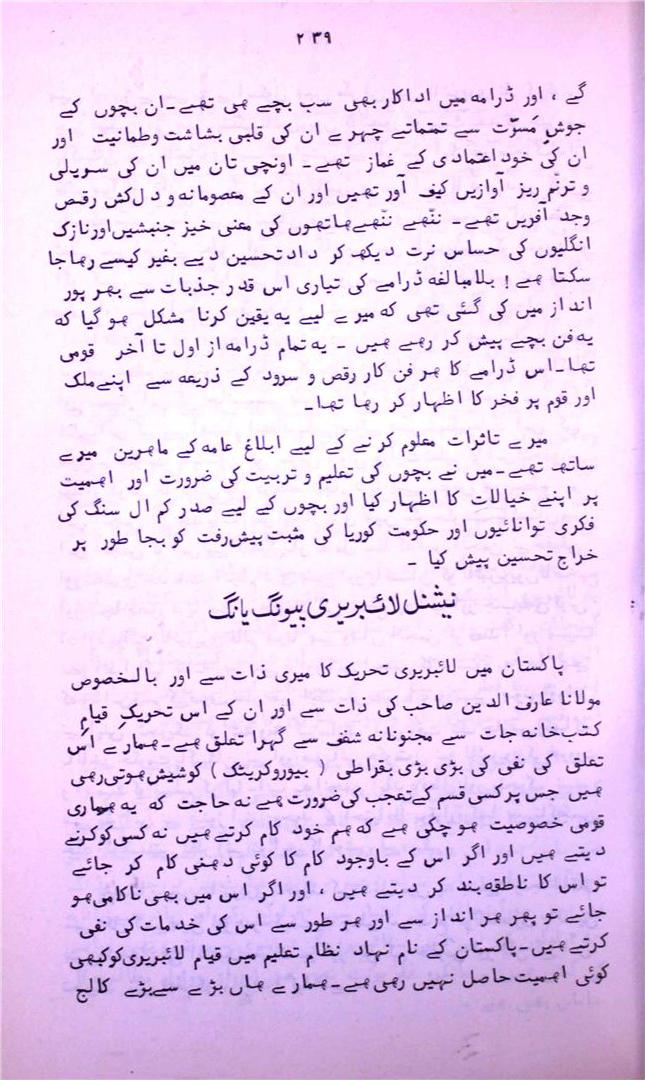 ۲۳۹
گے ، اور ڈرامہ میں اداکار بھی سب بچے ہی تھے۔ان بچوں کے
جوشِ مسّرت سے تمتماتے چہرے ان کی قلبی بشاشت وطمانیت اور
ان کی خود اعتمادی کے غماز تھے۔ اونچی تان میں ان کی سریلی
و ترنّم ریز آوازیں کیف آور تھیں اور ان کے معصومانہ و دل کش رقص
وجد آفریں تھے۔ ننّھے ننّھے ہاتھوں کی معنی خیز جنبشیں اور نازک
انگلیوں کی حساس نرت دیکھ کر داد تحسین دیے بغیر کیسے رہا جا
سکتا ہے! بلامبالغہ ڈرامے کی تیاری اس قدر جذبات سے بھر پور
انداز میں کی گئی تھی کہ میرے لیے یہ یقین کرنا مشکل ہو گیا کہ
یہ فن بچے پیش کر رہے ہیں ۔ یہ تمام ڈرامہ از اول تا آخر قومی
تھا۔اس ڈرامے کا ہر فن کار رقص و سرود کے ذریعہ سے اپنے ملک
اور قوم پر فخر کا اظہار کر رہا تھا۔
میرے تاثرات معلوم کرنے کے لیے ابلاغ عامہ کے ماہرین میرے
ساتھ تھے۔میں نے بچوں کی تعلیم و تربیت کی ضرورت اور اہمیت
پر اپنے خیالات کا اظہار کیا اور بچوں کے لیے صدر کم ال سنگ کی
فکری توانائیوں اور حکومت کوریا کی مثبت پیش رفت کو بجا طور پر
خراج تحسین پیش کیا ۔
نیشنل لائبریری پیونگ یانگ
پاکستان میں لائبریری تحریک کا میری ذات سے اور بالخصوص
مولانا عارف الدین صاحب کی ذات سے اور ان کے اس تحریکِ قیامِ
کتب خانہ جات سے مجنونانہ شغف سے گہرا تعلق ہے۔ہمارے اس
تعلق کی نفی کی بڑی بڑی بقراطی ( بیوروکریٹک ) کوشیش ہوتی رہی
ہیں جس پر کسی قسم کے تعجب کی ضرورت ہے نہ حاجت کہ یہ ہماری
قومی خصوصیت ہو چکی ہے کہ ہم خود کام کرتے ہیں نہ کسی کو کرنے
دیتے ہیں اور اگر اس کے باوجود کام کا کوئی دھنی کام کر جائے
تو اس کا ناطقہ بند کر دیتے ہیں ، اور اگر اس میں بھی ناکامی ہو
جائے تو پھر ہر انداز سے اور ہر طور سے اس کی خدمات کی نفی
کرتے ہیں۔پاکستان کے نام نہاد نظام تعلیم میں قیام لائبریری کو کبھی
کوئی اہمیت حاصل نہیں رہی ہے۔ہمارے ہاں بڑے سے بڑے کالج